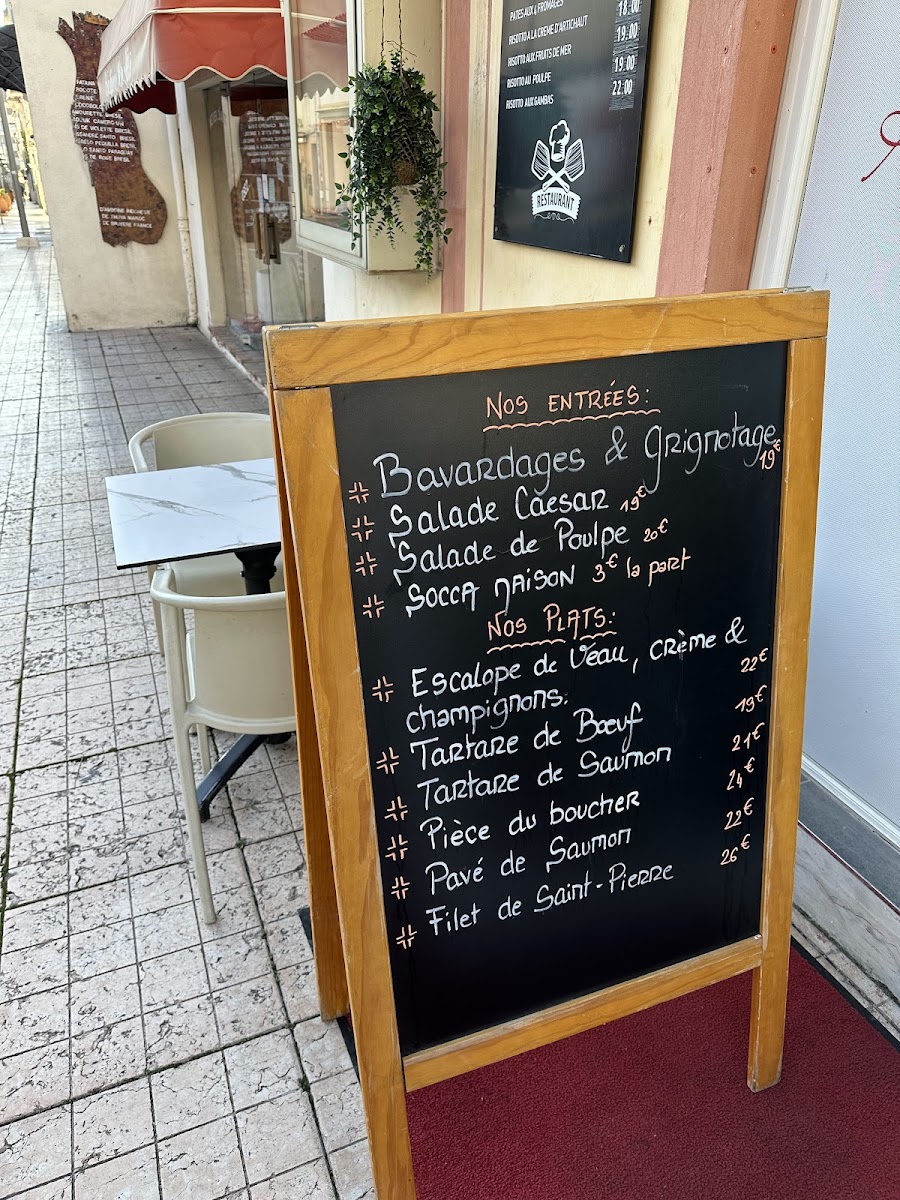 PATES AUX 4 FROMAGES
18.00
RISOTTO A LA CRÈME D'ARTICHAUT
19.00
RISOTTO AUX FRUITS DE MER
19.00
RISOTTO AU POULPE
22.00
RISOTTO AUX GAMBAS
RESTAURANT
D'AMBOINE INDONESIE
DE THUYA MAROC
DE BRUYERE FRANCE
NOS ENTRÉES:
Bavardages & Grignotage 19€
Salade Caesar 19€
Salade de Poulpe 20€
SOCCA MAISON 3€ la part
NOS PLATS:
Escalope de Veau, crème &
champignons. 22€
Tartare de Bœuf 19€
Tartare de Saumon 21€
Pièce du boucher 24€
Pavé de Saumon 22€
Filet de Saint-Pierre 26€